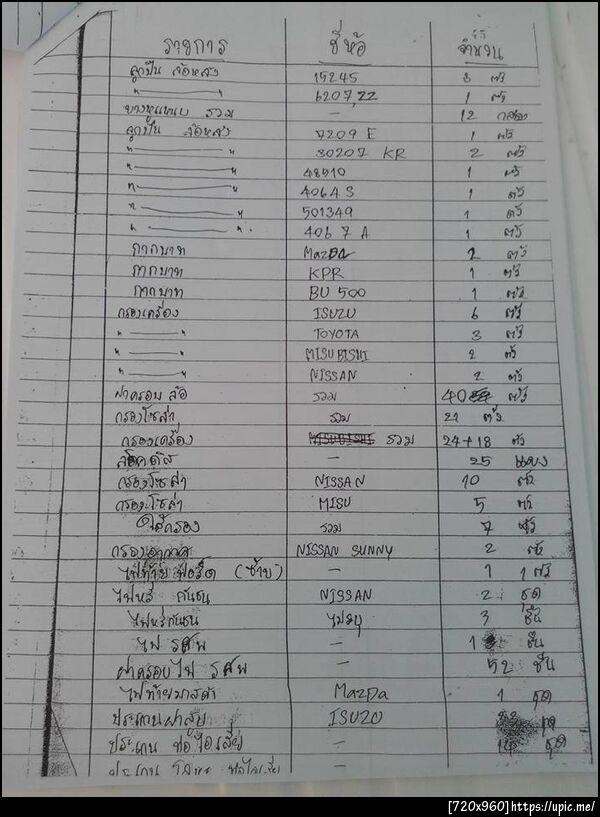 รายการ ยี่ห้อ จำนวน
ลูกปืน ล้อหลัง 15245 3 ตัว
" " 6207,22 1 ตัว
รวม - 12 กล่อง
ลูกปืน ล้อหลัง 7209 E 1 ตัว
" " 30207 KR 2 ตัว
" " 48510 1 ตัว
" " 4064 S 1 ตัว
" " 501349 1 ตัว
" " 406 7 A 1 ตัว
กากบาท Mazda 2 ตัว
กากบาท KPR 1 ตัว
กากบาท BU 500 1 ตัว
กรองเครื่อง ISUZU 6 ตัว
" " TOYOTA 3 ตัว
" " MISUBISHI 2 ตัว
" " NISSAN 2 ตัว
ฝาครอบ ล้อ รวม 40 ตัว
กรองโซล่า รวม 21 ตัว
กรองเครื่อง รวม 24+18 ตัว
- 25 แผง
กรองโซล่า NISSAN 10 ตัว
กรองโซล่า MISU 5 ตัว
ไส้กรอง รวม 7 ตัว
กรองอากาศ NISSAN SUNNY 2 ตัว
ไฟท้าย ฟอร์ด (ซ้าย) - 1 ตัว
ไฟหรี่ กันชน NISSAN 2 ชุด
ไฟหรี่กันชน ไม่ระบุ 3 ชิ้น
ไฟ รสพ - 1 ชิ้น
ฝาครอบไฟ รสพ - 52 ชิ้น
ไฟท้ายมาสด้า Mazda 1 ชุด
ประเกนฝาสูบ ISUZU ชุด
ประเกน ท่อไอเสีย - ชุด
ประเกน -
[720x960] https://upic.me/